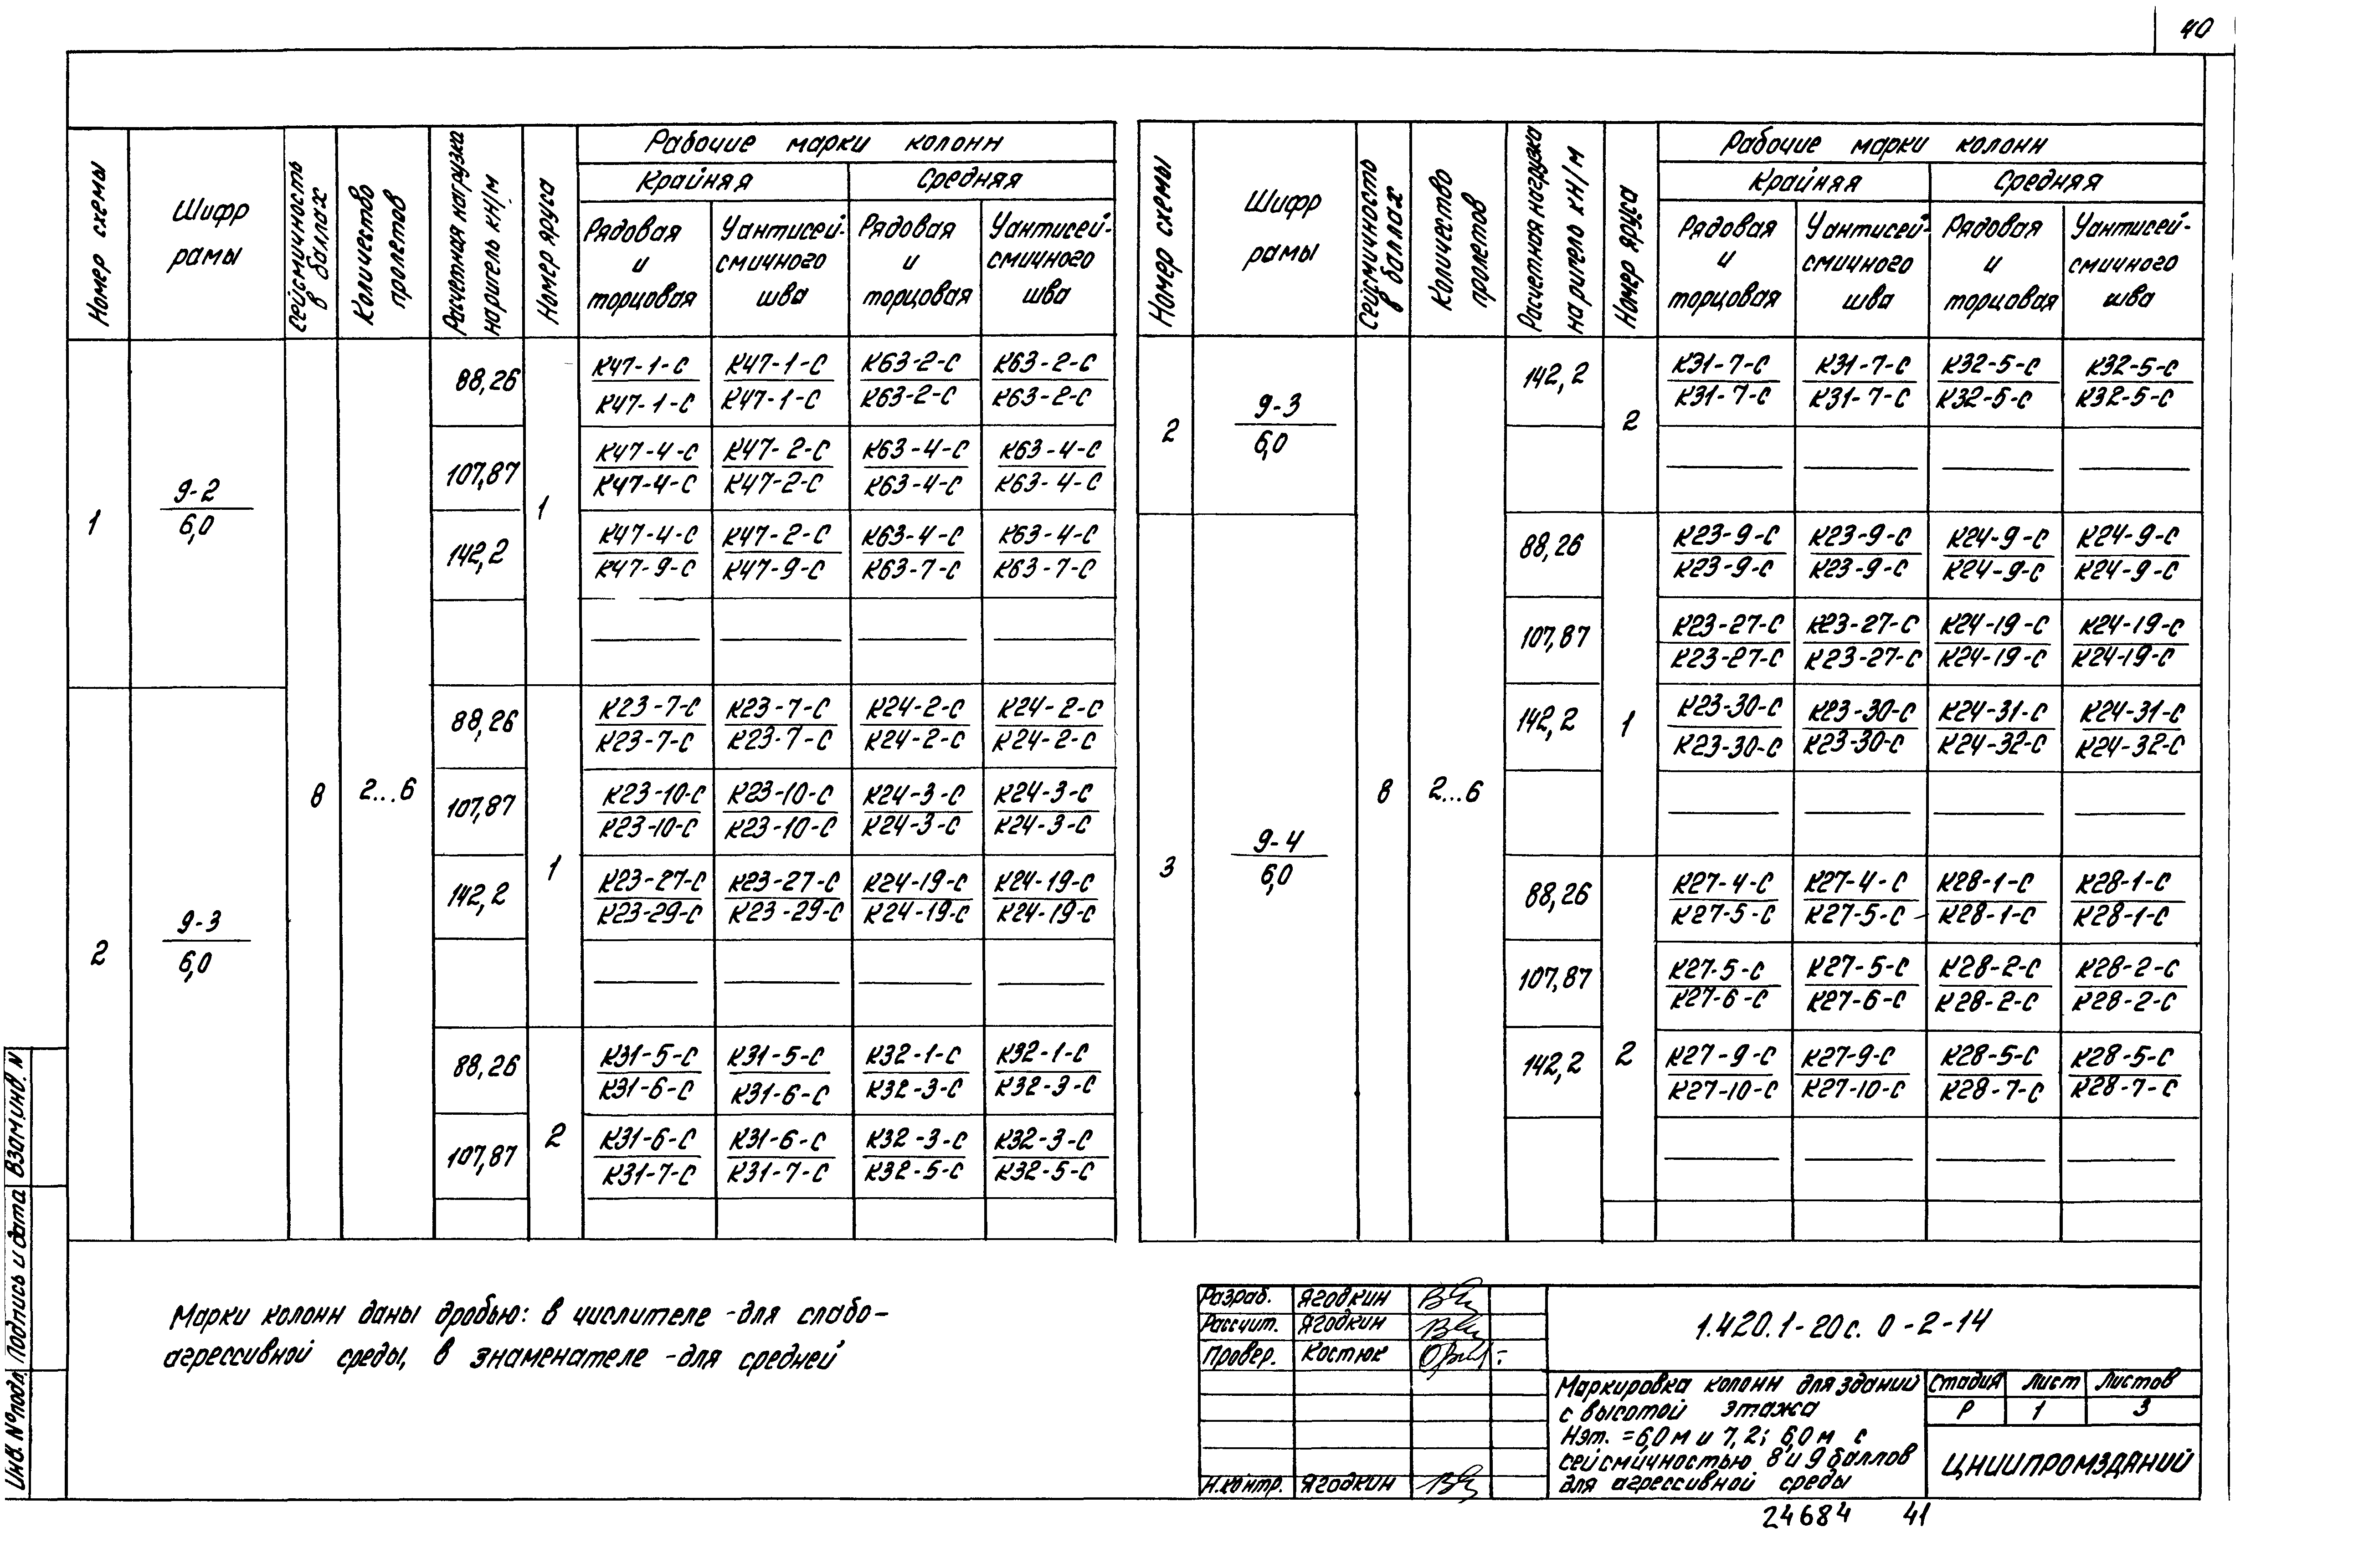 40
Номер схемы
Шифр рамы
Сейсмичность в баллах
Количество пролетов
Расчетная нагрузка на ригель кН/м
Номер яруса
Рабочие марки колонн
Крайняя Средняя
Рядовая и торцовая
У антисейсмичного шва
Рядовая и торцовая
У антисейсмичного шва
1 9-2/6,0 8 2...6 1
88,26 К47-1-С/К47-1-С К47-1-С/К47-1-С К63-2-С/К63-2-С К63-2-С/К63-2-С
107,87 К47-4-С/К47-4-С К47-2-С/К47-2-С К63-4-С/К63-4-С К63-4-С/К63-4-С
142,2 К47-4-С/К47-9-С К47-2-С/К47-9-С К63-4-С/К63-7-С К63-4-С/К63-7-С
2 9-3/6,0 1
88,26 К23-7-С/К23-7-С К23-7-С/К23-7-С К24-2-С/К24-2-С К24-2-С/К24-2-С
107,87 К23-10-С/К23-10-С К23-10-С/К23-10-С К24-3-С/К24-3-С К24-3-С/К24-3-С
142,2 К23-27-С/К23-29-С К23-27-С/К23-29-С К24-19-С/К24-19-С К24-19-С/К24-19-С
2
88,26 К31-5-С/К31-6-С К31-5-С/К31-6-С К32-1-С/К32-3-С К32-1-С/К32-3-С
107,87 К31-6-С/К31-7-С К31-6-С/К31-7-С К32-3-С/К32-5-С К32-3-С/К32-5-С
Номер схемы
Шифр рамы
Сейсмичность в баллах
Количество пролетов
Расчетная нагрузка на ригель кН/м
Номер яруса
Рабочие марки колонн
Крайняя Средняя
Рядовая и торцовая
У антисейсмичного шва
Рядовая и торцовая
У антисейсмичного шва
2 9-3/6,0 8 2...6 2
142,2 К31-7-С/К31-7-С К31-7-С/К31-7-С К32-5-С/К32-5-С К32-5-С/К32-5-С
3 9-4/6,0 1
88,26 К23-9-С/К23-9-С К23-9-С/К23-9-С К24-9-С/К24-9-С К24-9-С/К24-9-С
107,87 К23-27-С/К23-27-С К23-27-С/К23-27-С К24-19-С/К24-19-С К24-19-С/К24-19-С
142,2 К23-30-С/К23-30-С К23-30-С/К23-30-С К24-31-С/К24-32-С К24-31-С/К24-32-С
2
88,26 К27-4-С/К27-5-С К27-4-С/К27-5-С К28-1-С/К28-1-С К28-1-С/К28-1-С
107,87 К27-5-С/К27-6-С К27-5-С/К27-6-С К28-2-С/К28-2-С К28-2-С/К28-2-С
142,2 К27-9-С/К27-10-С К27-9-С/К27-10-С К28-5-С/К28-7-С К28-5-С/К28-7-С
Марки колонн даны дробью: в числителе -для слабо-
агрессивной среды, в знаменателе -для средней
Разраб. Ягодкин
Рассчит. Ягодкин
Провер. Костюк
Н.контр. Ягодкин
1.420.1-20с. 0-2-14
Маркировка колонн для зданий
с высотой этажа
Нэт. =6,0м и 7,2; 6,0м с
сейсмичностью 8 и 9 баллов
для агрессивной среды
Стадия Лист Листов
Р 1 3
ЦНИИПРОМЗДАНИЙ
24684 41
Инв. № подл. Подпись и дата Взам.инв. N